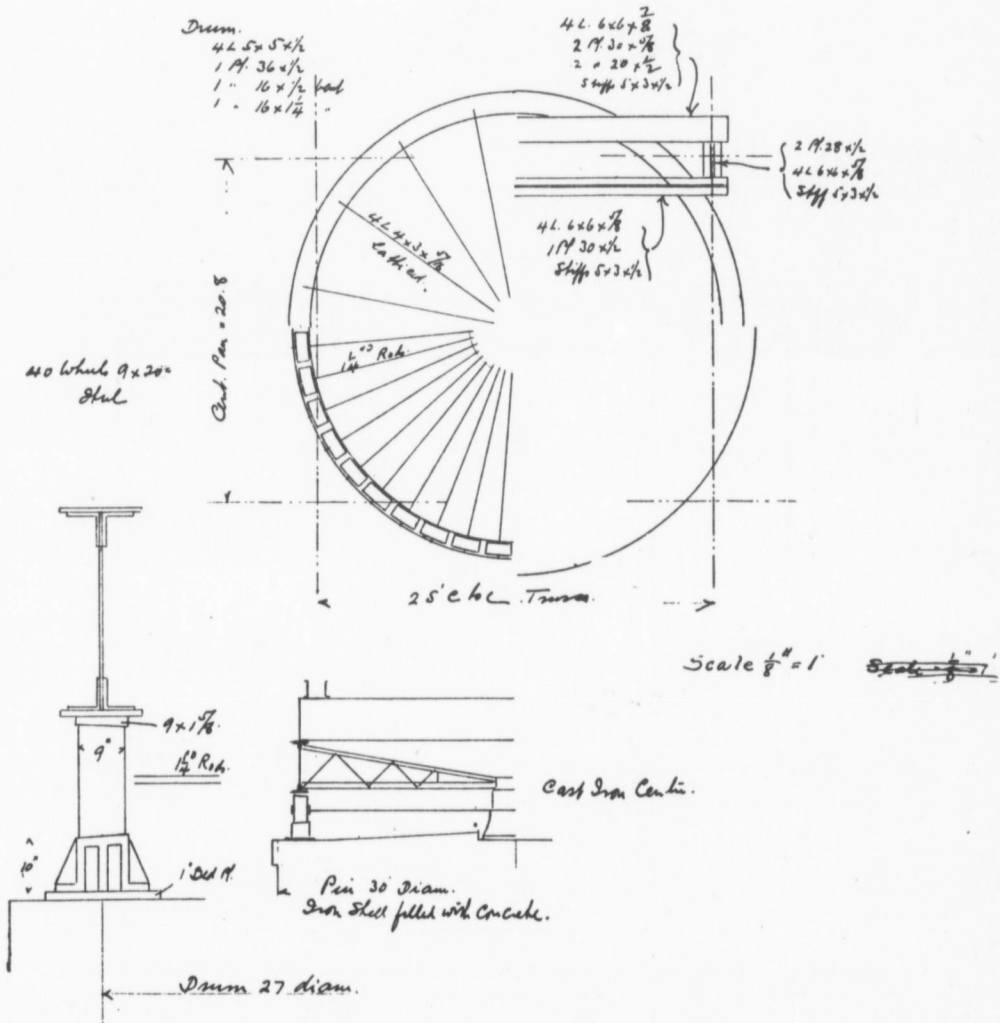 Drum.
4 L 5 x 5 x 1/2
1 Pl. 36 x 1/2
1 " 16 x 1/2
1 " 16 x 1 1/4 "
4 L. 6x6x
2 Pl. 30 x 5/8
2 " 20 x 1/2
Stiffs 5 x 3 x 1/2
2 Pl. 28 x 1/2
4 L 6x4 x 5/8
Stiff 5x3x1/2
4 L. 6x6 x 5/8
1 Pl 30 x 1/2
Stiffs 5x3 x 1/2
4 L 4 x 3 x 5/8
latticed.
1 1/4" Rods.
Cent. Pan = 20.8
40 Wheels 9 x 20"
Steel
25' c to c Trusses.
Scale 1/8" = 1'
9 x 1 5/8.
9"
1 1/4" Rods.
10"
1" Bed Pl.
Cast Iron Centre.
Pier 30' Diam.
Iron Shell filled with Concrete.
Drum 27 diam.